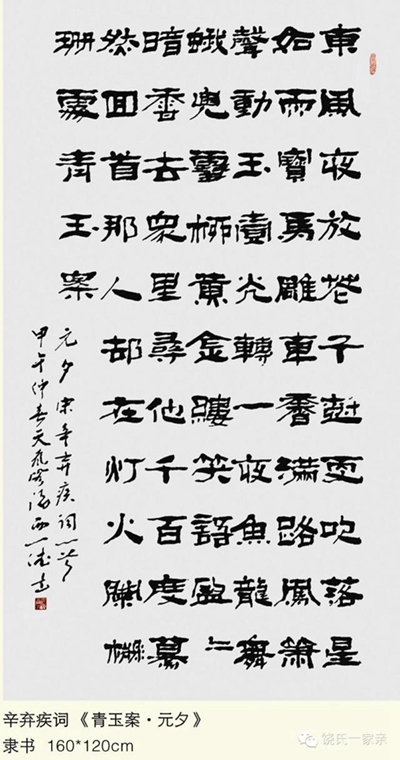 東風夜放花千樹更吹落星
如雨寶馬雕車香滿路鳳簫
聲動玉壺光轉一夜魚龍舞
蛾兒雪柳黃金縷笑語盈〻
暗香去眾里尋他千百度驀
然回首那人却在灯火闌
珊處青玉案
元夕宋辛弃疾词一首
甲午仲春天風
辛弃疾词《青玉案·元夕》
隶书 160*120cm
饶氏一家亲